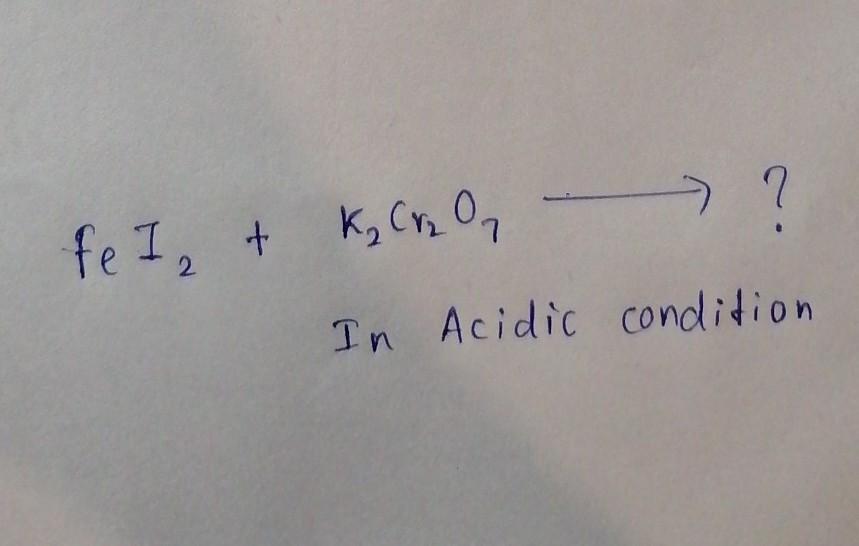 fe I₂ + K₂Cr₂O₇ ⟶ ?
In Acidic condition